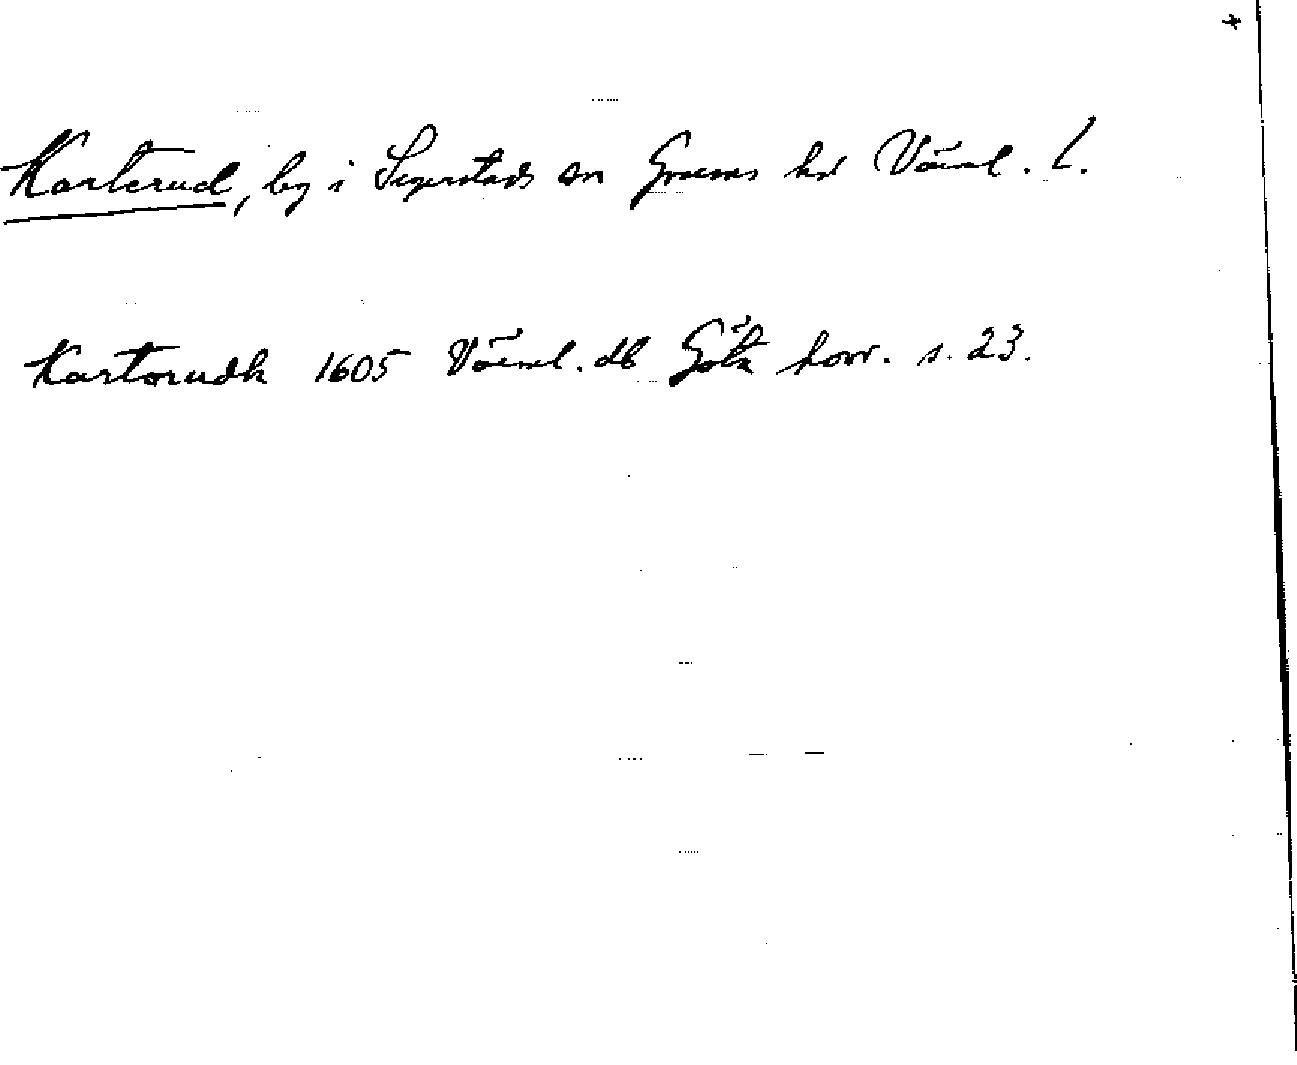 Karterud, by i Segerstads sn Grums hd Värml. l.
Kartorudh 1605 Värml. db Göta hovr. s. 23.